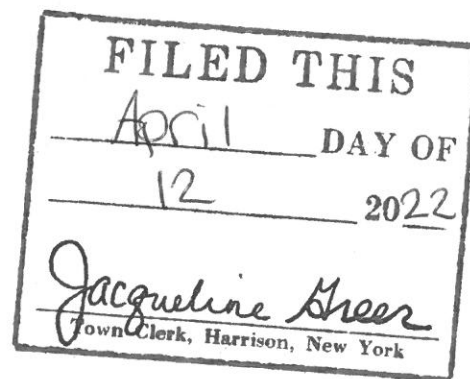 FILED THIS
April DAY OF
12 2022
Jacqueline Greer
Town Clerk, Harrison, New York